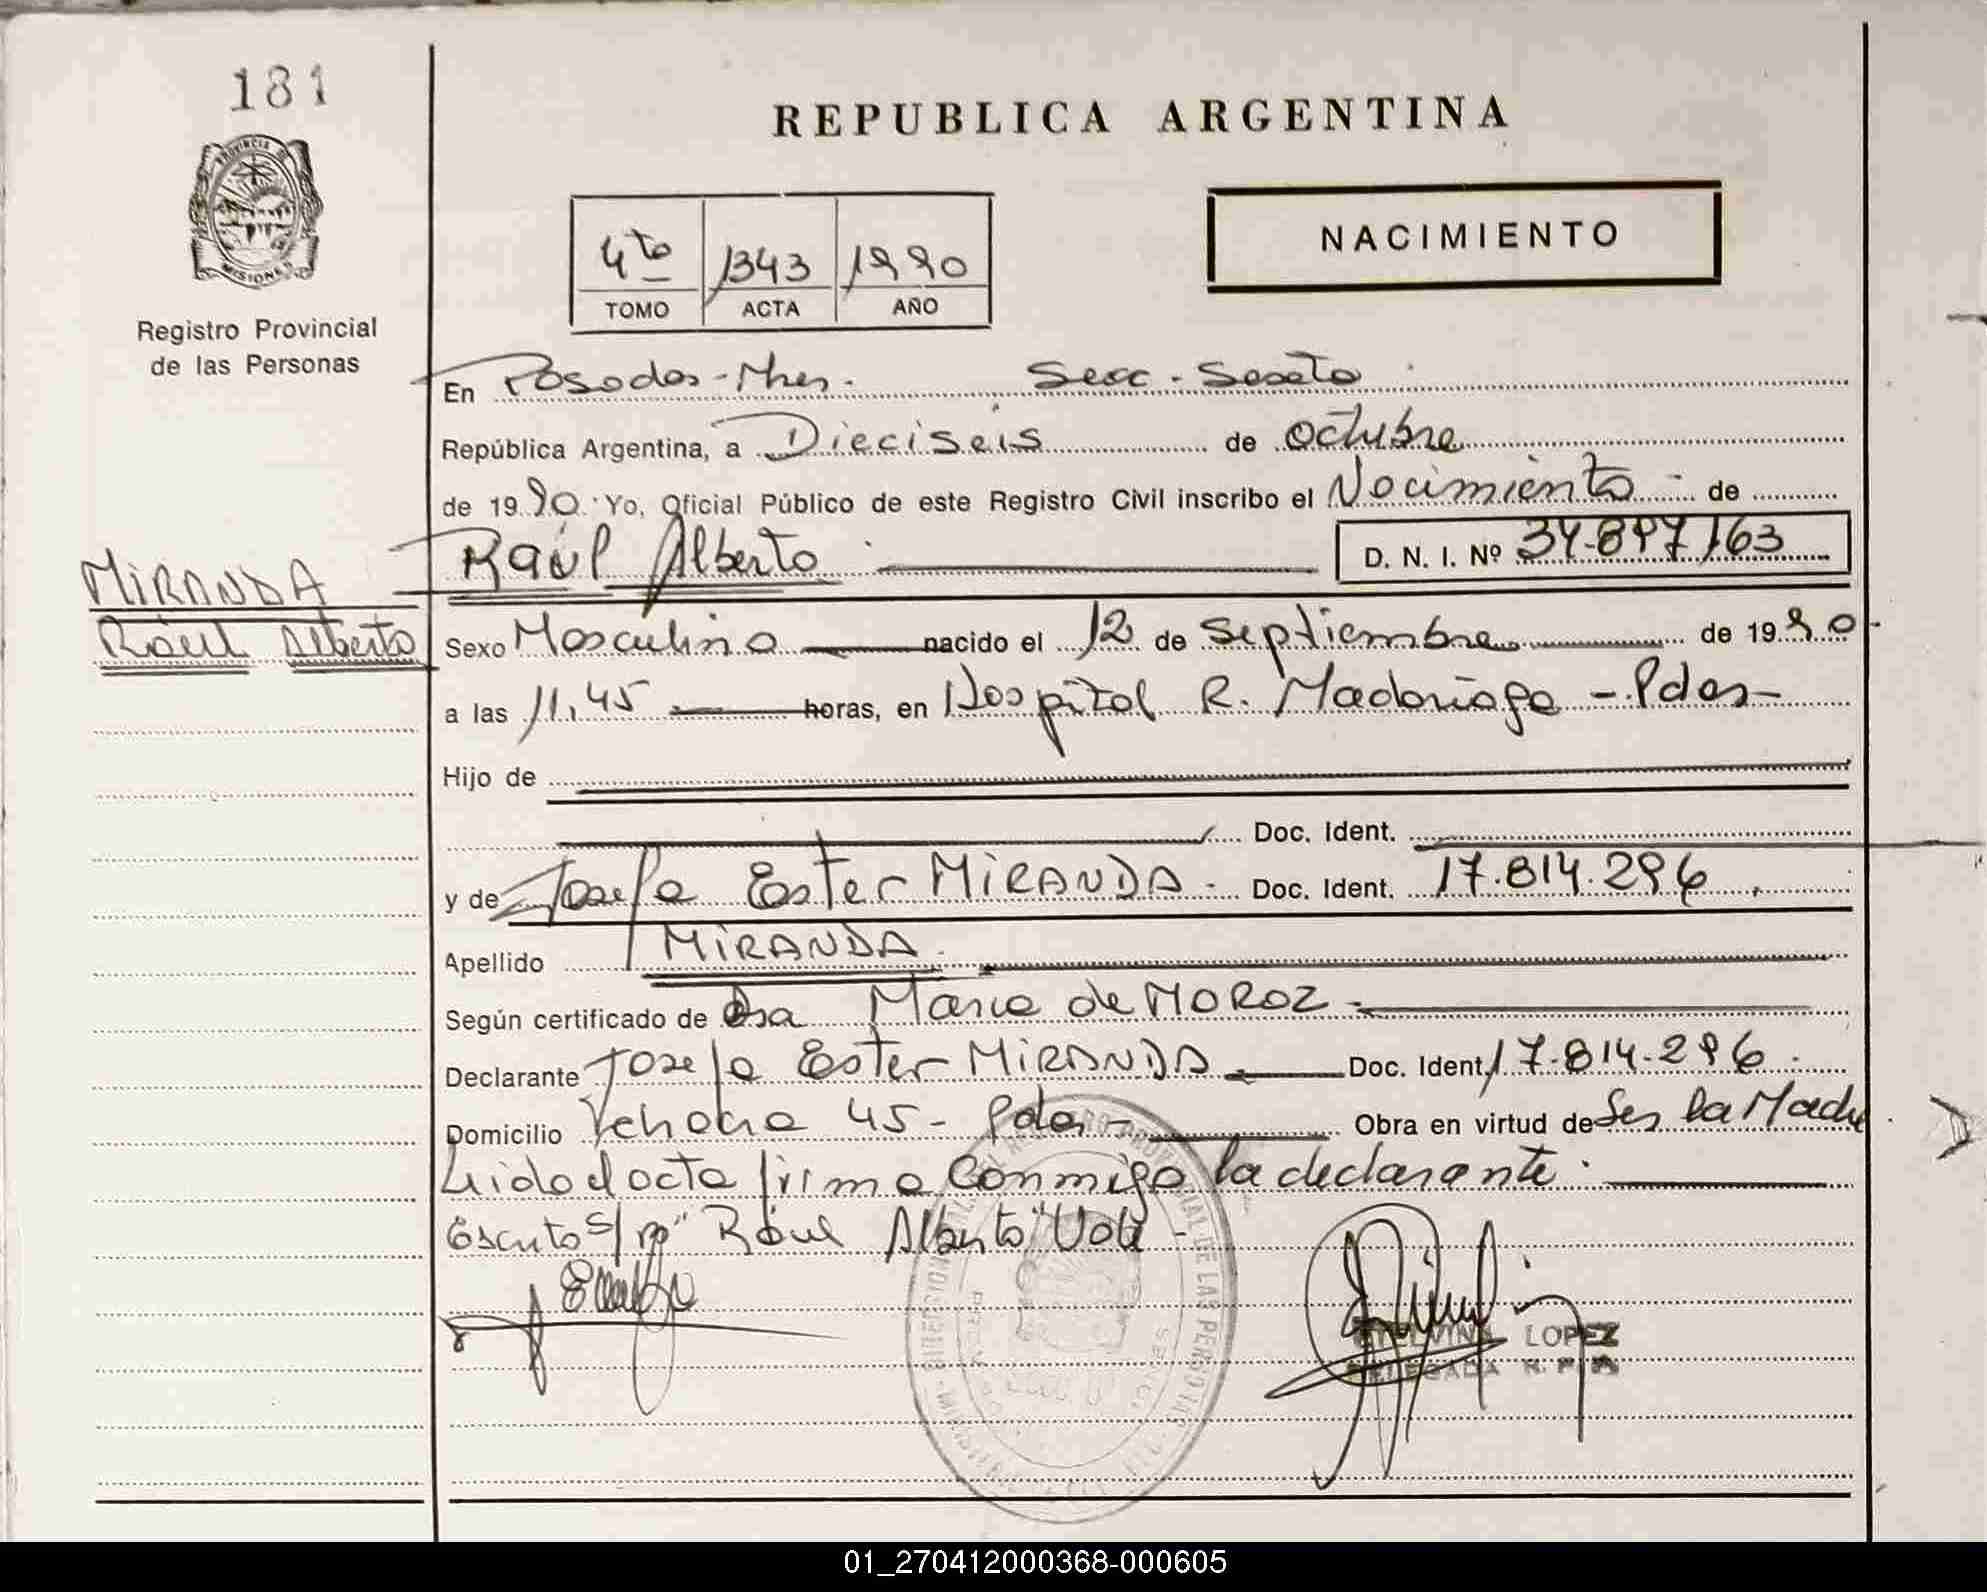 181
REPUBLICA ARGENTINA
PROVINCIA DE
MISIONES
Registro Provincial
de las Personas
4to 1343 1990
TOMO ACTA AÑO
NACIMIENTO
En Posadas-Mnes. Secc. Sexta
República Argentina, a Dieciseis de octubre
de 1990 Yo, Oficial Público de este Registro Civil inscribo el Nacimiento de
Raúl Alberto D. N. I. Nº 34.897163
MIRANDA
Raúl Alberto
Sexo Masculino nacido el 12 de Septiembre de 1990
a las 11,45 horas, en Hospital R. Madariaga - Pdas -
Hijo de
Doc. Ident.
y de Josefa Ester MIRANDA - Doc. Ident. 17.814.296
Apellido MIRANDA
Según certificado de Dra Maria de MOROZ -
Declarante Josefa Ester MIRANDA Doc. Ident. 17.814.296
Domicilio 45 - Pdas - Obra en virtud de Ser la Madre
Leida el acta firma conmigo la declarante.
Escrito s/rp "Raúl Alberto" Vale -
LOPEZ
DELEGADA R. P. P.
01_270412000368-000605